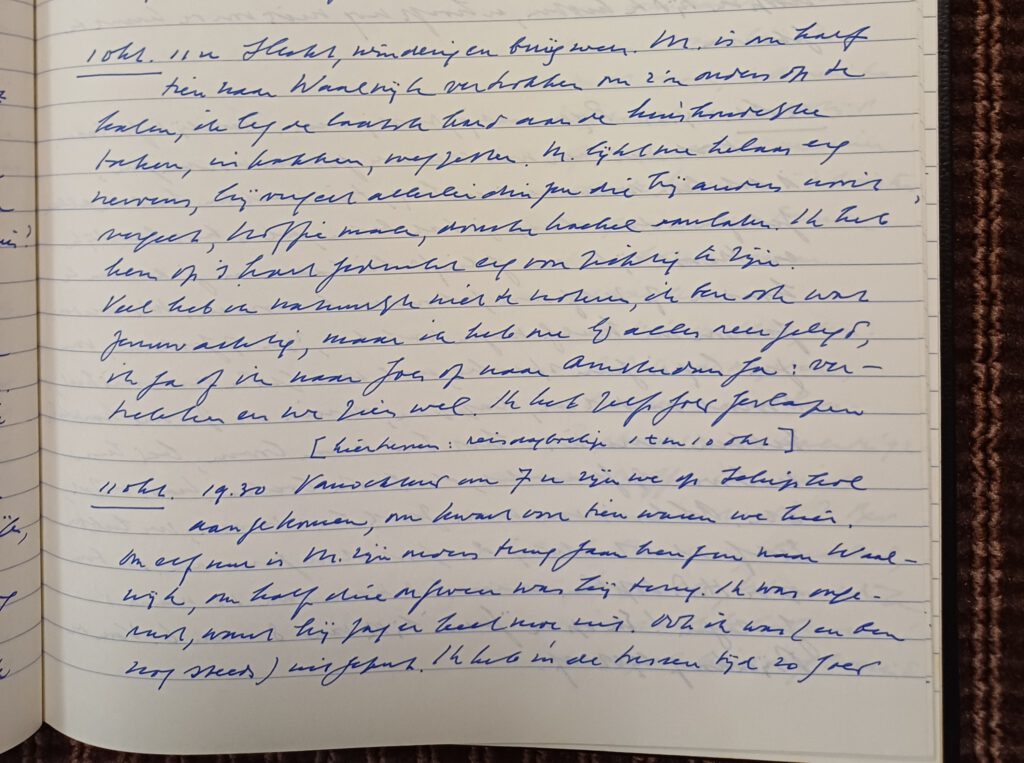 1 okt. 11 u Slecht, winderig en buiig weer. M. is om half
tien naar Waalwijk vertrokken om z'n ouders op te
halen, ik leg de laatste hand aan de huishoudelijke
taken, inpakken, wegzetten. M. lijkt me helaas erg
nerveus, hij vergeet allerlei dingen die hij anders nooit
vergeet, koffie maken, kachel aanlaten. Ik heb
hem op 't hart gedrukt erg voorzichtig te zijn.
Veel heb ik natuurlijk niet te noteren, ik ben ook wat
zenuwachtig, maar ik heb me bij alles neergelegd,
ik ga of ik naar Goes of naar Amsterdam ga: ver-
trekken en we zien wel. Ik heb zelf goed geslapen
[hierheen: reisdagboekje 1 t/m 10 okt]
11 okt. 19.30 Vanochtend om 7 u zijn we op Schiphol
aangekomen, om kwart voor tien waren we hier.
Om elf uur is M. zijn ouders terug gaan brengen naar Waal-
wijk, om half drie was hij terug. Ik was onge-
rust, want hij zag er heel moe uit. Ook ik was (en ben
nog steeds) uitgeput. Ik heb in de tussentijd zo goed